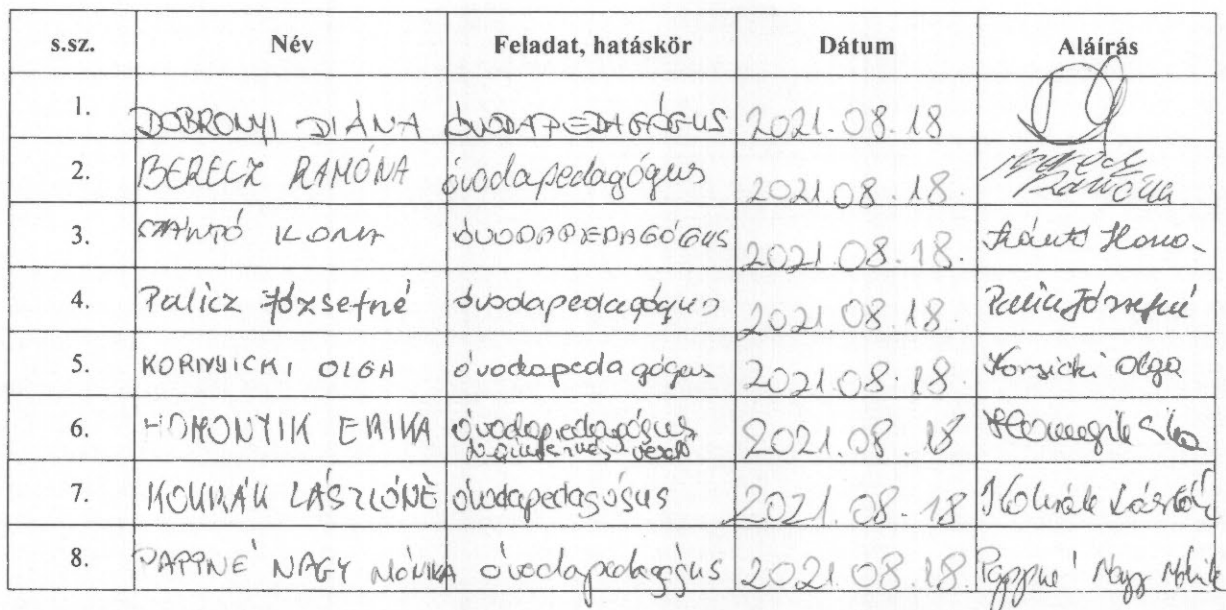 s.sz. Név Feladat, hatáskör Dátum Aláírás
1. DOBRONYI DIÁNA ÓVODAPEDAGÓGUS 2021.08.18
2. BERECZ RAMÓNA óvodapedagógus 2021.08.18. Berecz
Ramóna
3. SZÁNTÓ ILONA ÓVODAPEDAGÓGUS 2021.08.18. Szántó Ilona
4. Palicz Józsefné óvodapedagógus 2021.08.18. Palicz Józsefné
5. OLGA óvodapedagógus 2021.08.18. Olga
6. HOMONYIK ERIKA óvodapedagógus 2021.08.18
7. LÁSZLÓNÉ óvodapedagógus 2021.08.18 Lászlóné
8. PAPPNÉ NAGY MÓNIKA óvodapedagógus 2021.08.18. Pappné Nagy Mónika